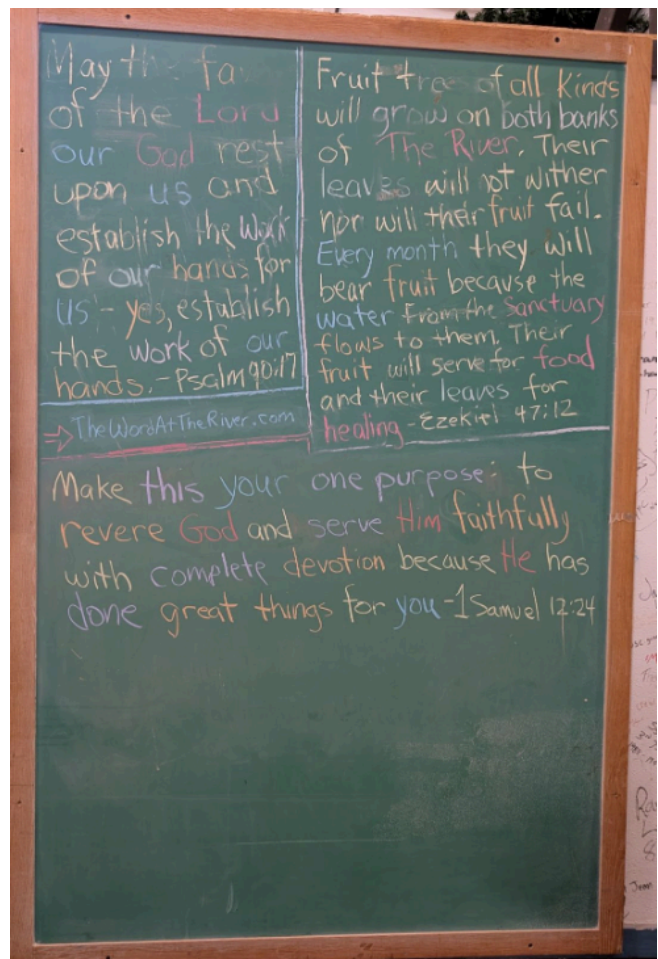 May the fa
of the Lord
our God rest
upon us and
establish the work
of our hands for
us - yes, establish
the work of our
hands. - Psalm 90:17
TheWordAtTheRiver.com
Fruit trees of all kinds
will grow on both banks
of The River. Their
leaves will not wither
nor will their fruit fail.
Every month they will
bear fruit because the
water from the Sanctuary
flows to them. Their
fruit will serve for food
and their leaves for
healing - Ezekiel 47:12
Make this your one purpose: to
revere God and serve Him faithfully
with complete devotion because He has
done great things for you - 1 Samuel 12:24